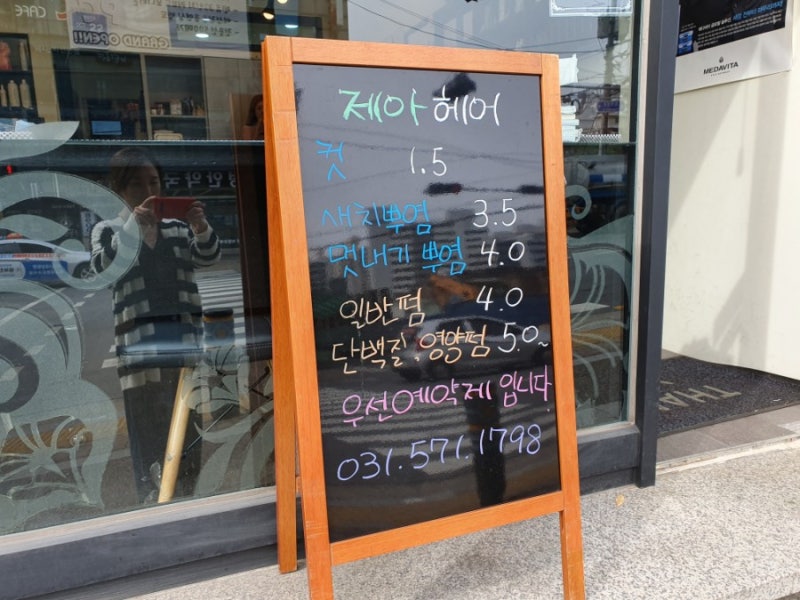 GRAND OPEN!!
CAFE
MEDAVITA
제아헤어
컷 1.5
새치뿌염 3.5
멋내기 뿌염 4.0
일반펌 4.0
단백질.영양펌 5.0~
우선예약제 입니다
031.571.1798
THAN